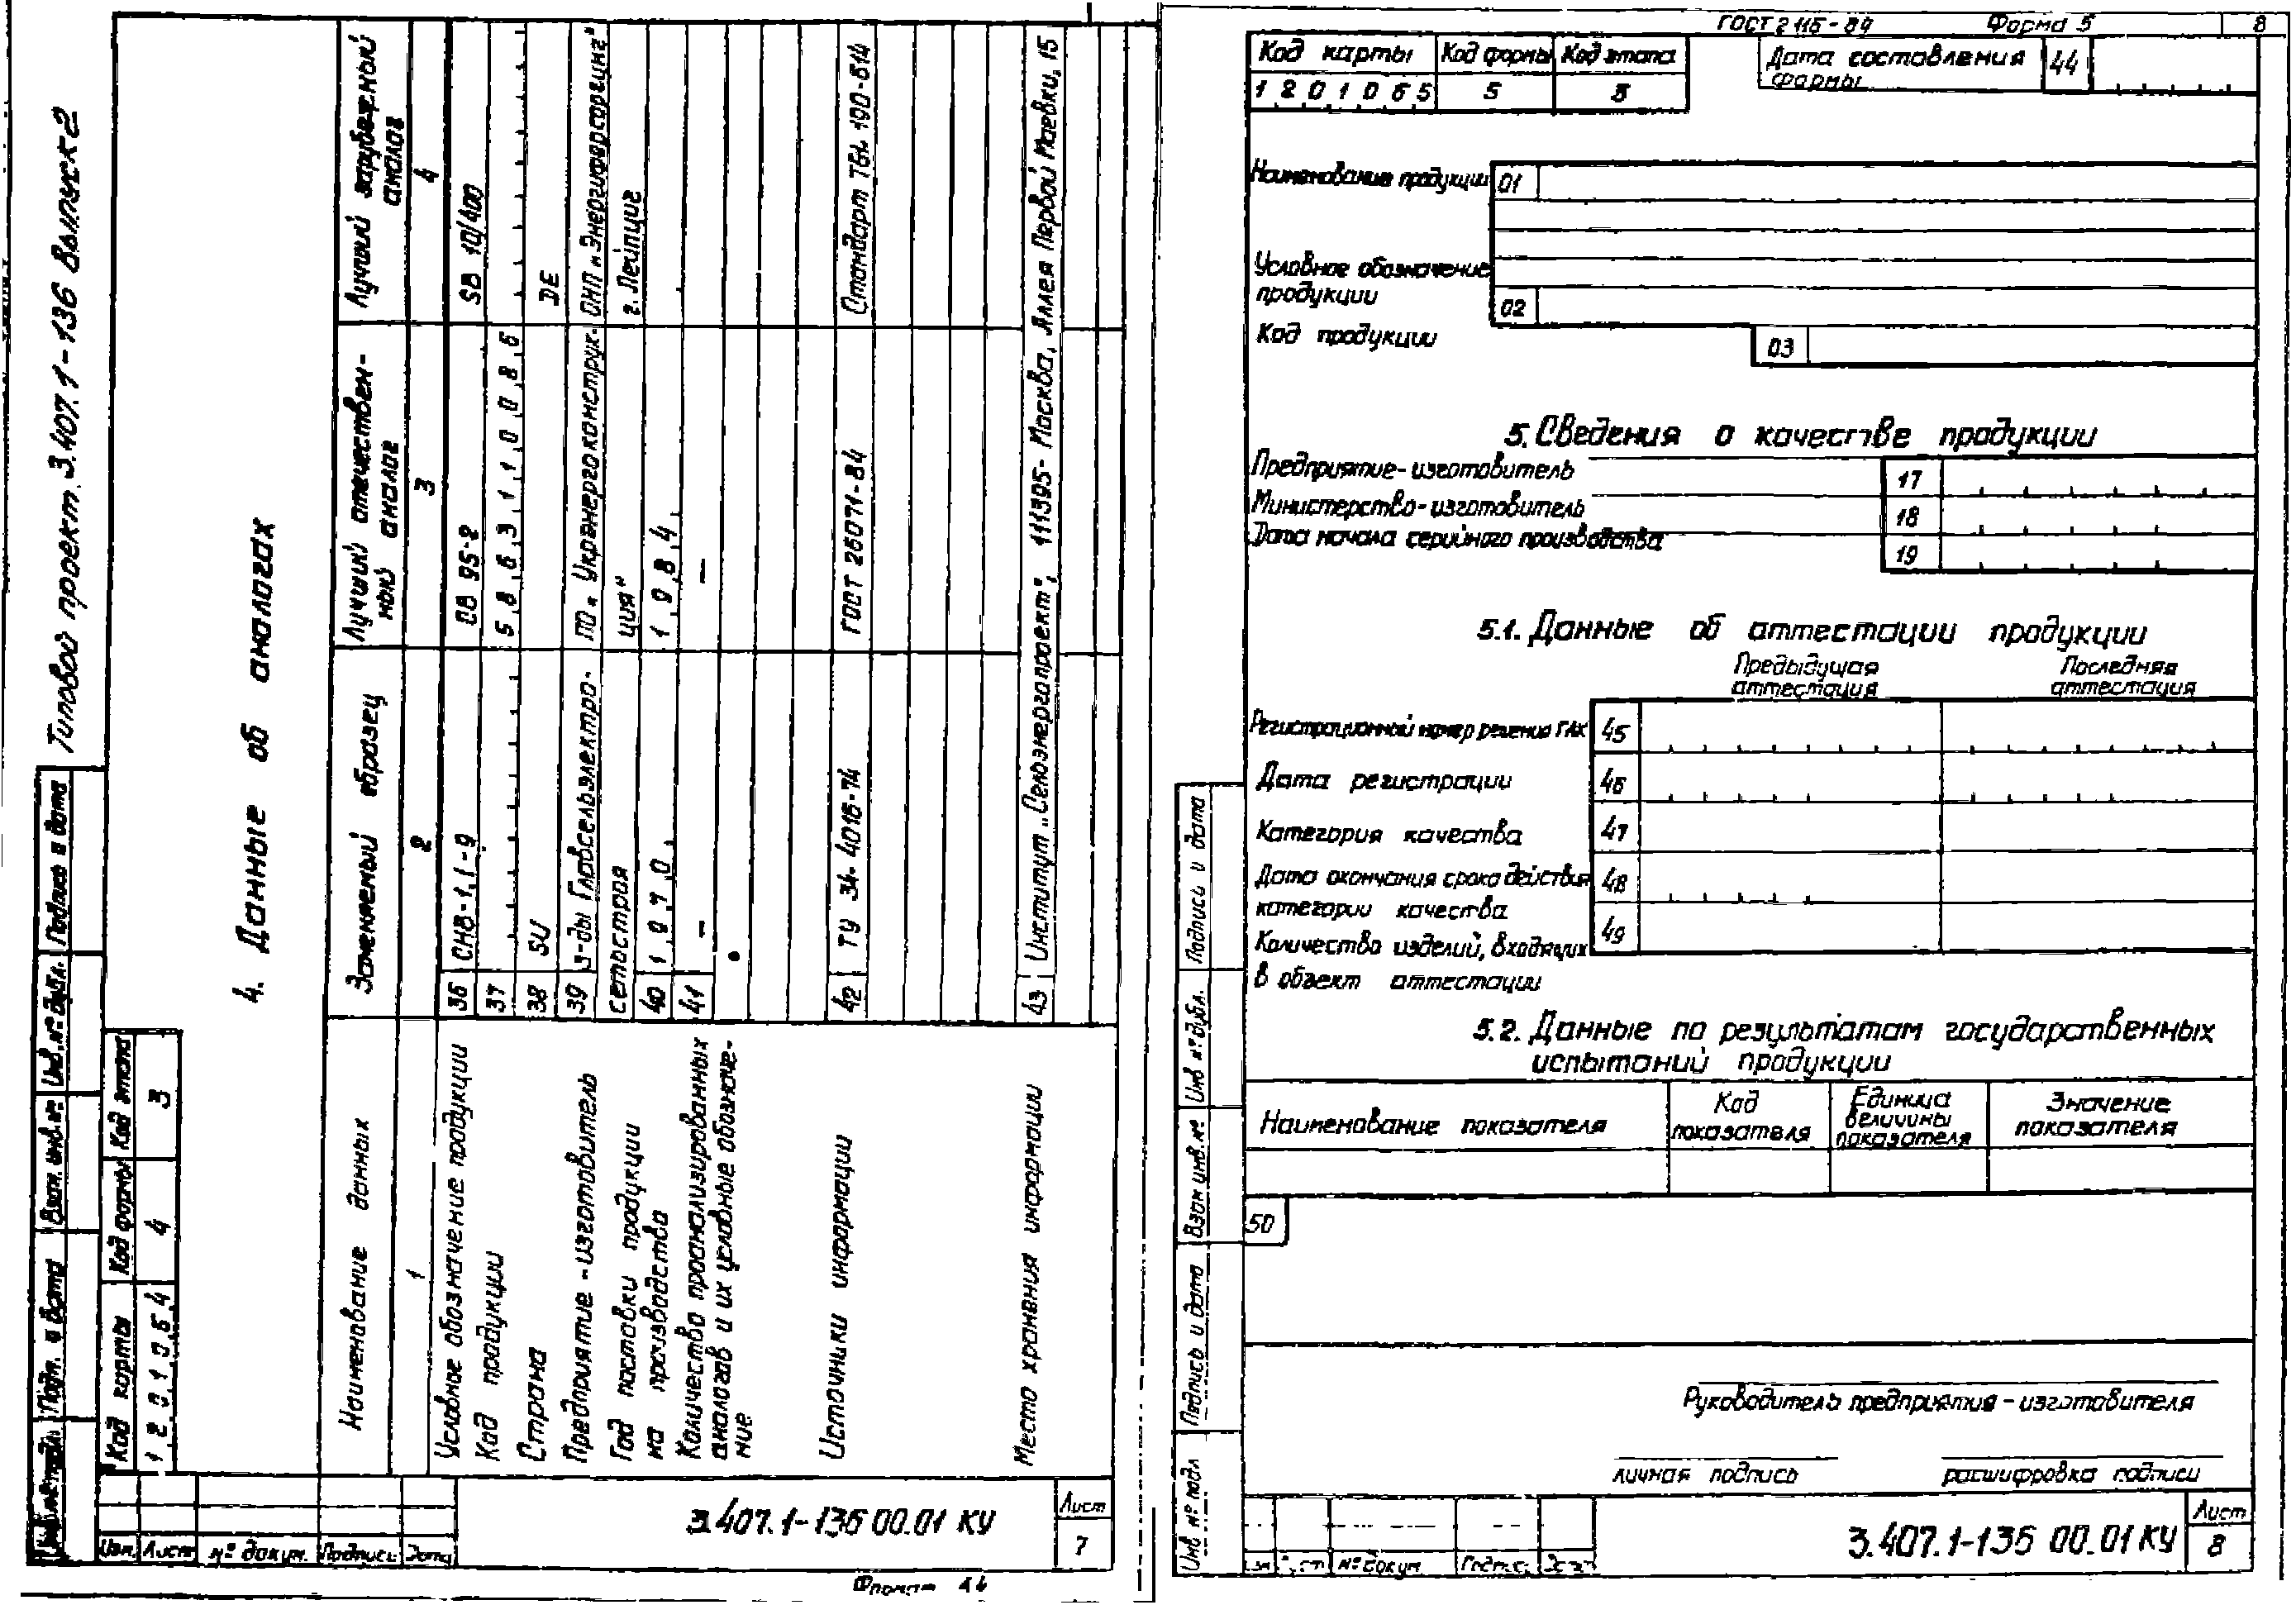 Типовой проект 3.407.1-136 Выпуск 2
Код карты Код формы Код этапа
1 2 0 1 0 6 4 4 3
4. Данные об аналогах
Наименование данных Заменяемый образец Лучший отечествен- Лучший зарубежный
ный аналог аналог
1 2 3 4
Условное обозначение продукции 36 СНВ-1,1-9 СВ 95-2 SB 10/400
Код продукции 37 5 8 6 3 1 1 0 0 8 6
Страна 38 SU DE
Предприятие-изготовитель 39 з-ды Главсельэлектро- ПО „Укрэнергоконструк- ОНП „Энергиферсоргунг"
сетьстроя ция" г. Лейпциг
Год поставки продукции 40 1 9 7 0 1 9 8 4
на производство
Количество проанализированных 41 – –
аналогов и их условные обозначе-
ние
Источники информации 42 ТУ 34-4016-74 ГОСТ 26071-84 Стандарт TGL 190-614
Место хранения информации 43 Институт „Сельэнергопроект", 111395-Москва, Аллея Первой Маевки, 15
Подпись и дата
Инв. № дубл.
Взам. инв. №
Подп. и дата
Изм. Лист № докум. Подпись Дата
3.407.1-136 00.01 КУ
Лист
7
Формат
ГОСТ 2.116-84 Форма 5 8
Код карты Код формы Код этапа
1 2 0 1 0 6 5 5 3
Дата составления 44
формы
Наименование продукции 01
Условное обозначение
продукции 02
Код продукции 03
5. Сведения о качестве продукции
Предприятие-изготовитель 17
Министерство-изготовитель 18
Дата начала серийного производства 19
5.1. Данные об аттестации продукции
Предыдущая Последняя
аттестация аттестация
Регистрационный номер решения ГАК 45
Дата регистрации 46
Категория качества 47
Дата окончания срока действия 48
категории качества
Количество изделий, входящих 49
в объект аттестации
5.2. Данные по результатам государственных
испытаний продукции
Наименование показателя Код Единица Значение
показателя величины показателя
показателя
50
Руководитель предприятия-изготовителя
личная подпись расшифровка подписи
Подпись и дата
Инв № дубл.
Взам инв. №
Подпись и дата
Инв № подл
№ докум.
3.407.1-136 00.01 КУ
Лист
8